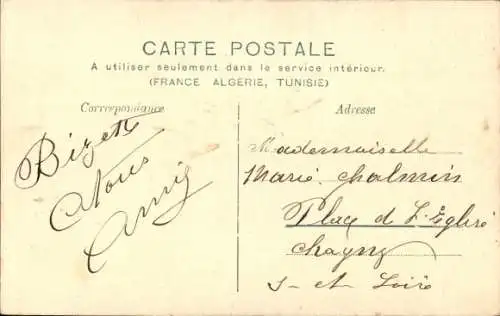 CARTE POSTALE
A utiliser seulement dans le service intérieur.
(FRANCE ALGERIE, TUNISIE)
Correspondance
Adresse
Mademoiselle
Marie Chalmin
Place d L'Église
Chagny
S- et Loire